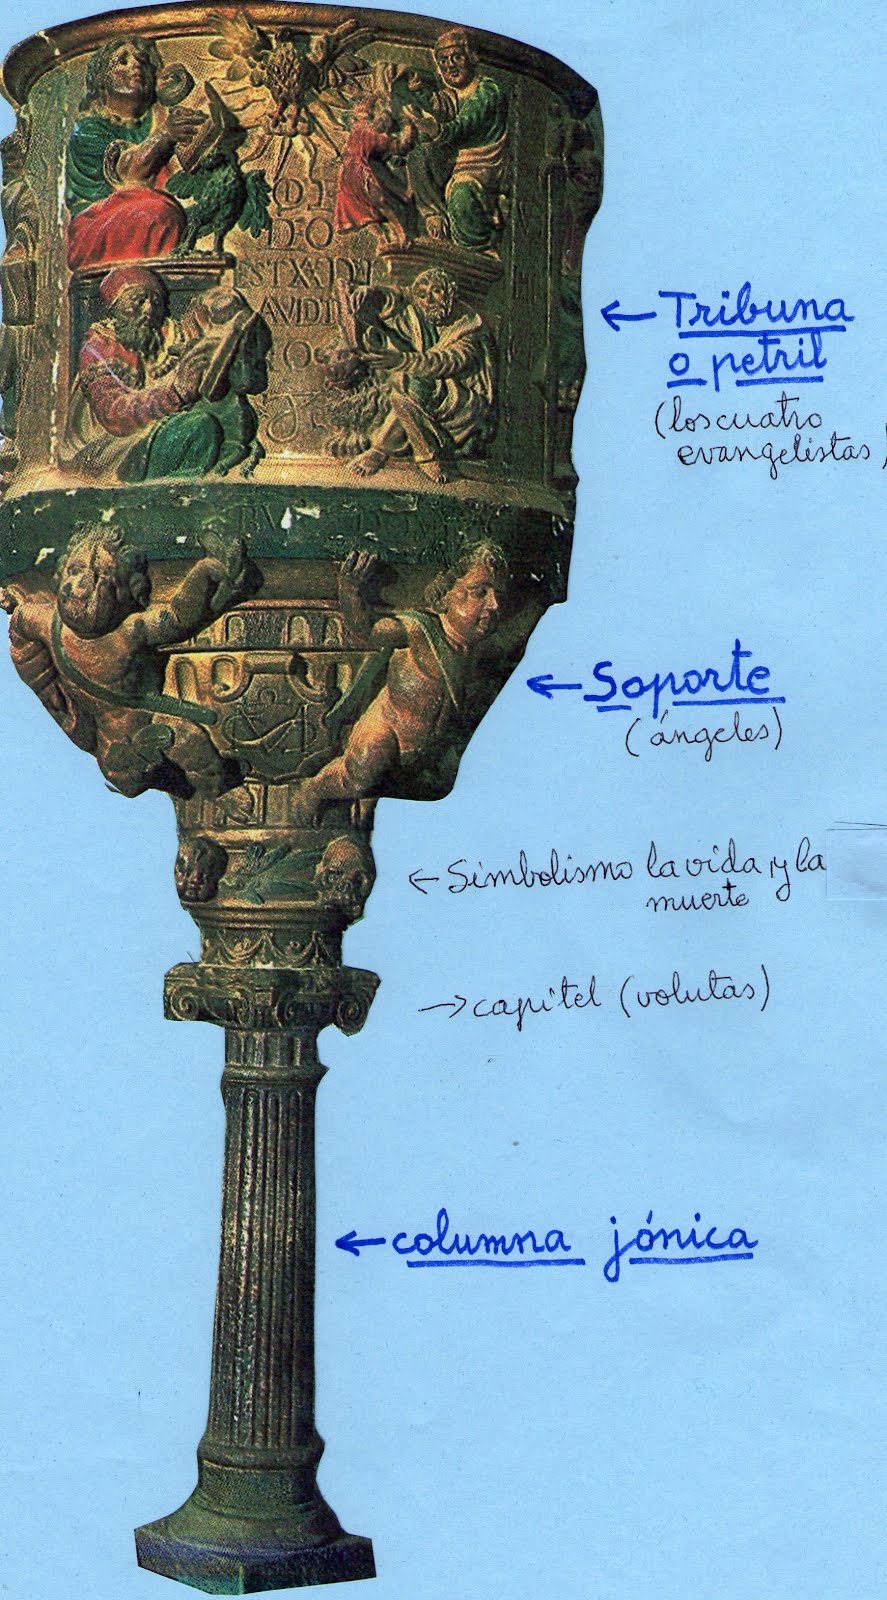 QI
DEO
EST XADI
AVDI
← Tribuna
o petril
(los cuatro
evangelistas)
← Soporte
(ángeles)
← Simbolismo la vida y la
muerte
→ capitel (volutas)
← columna jónica